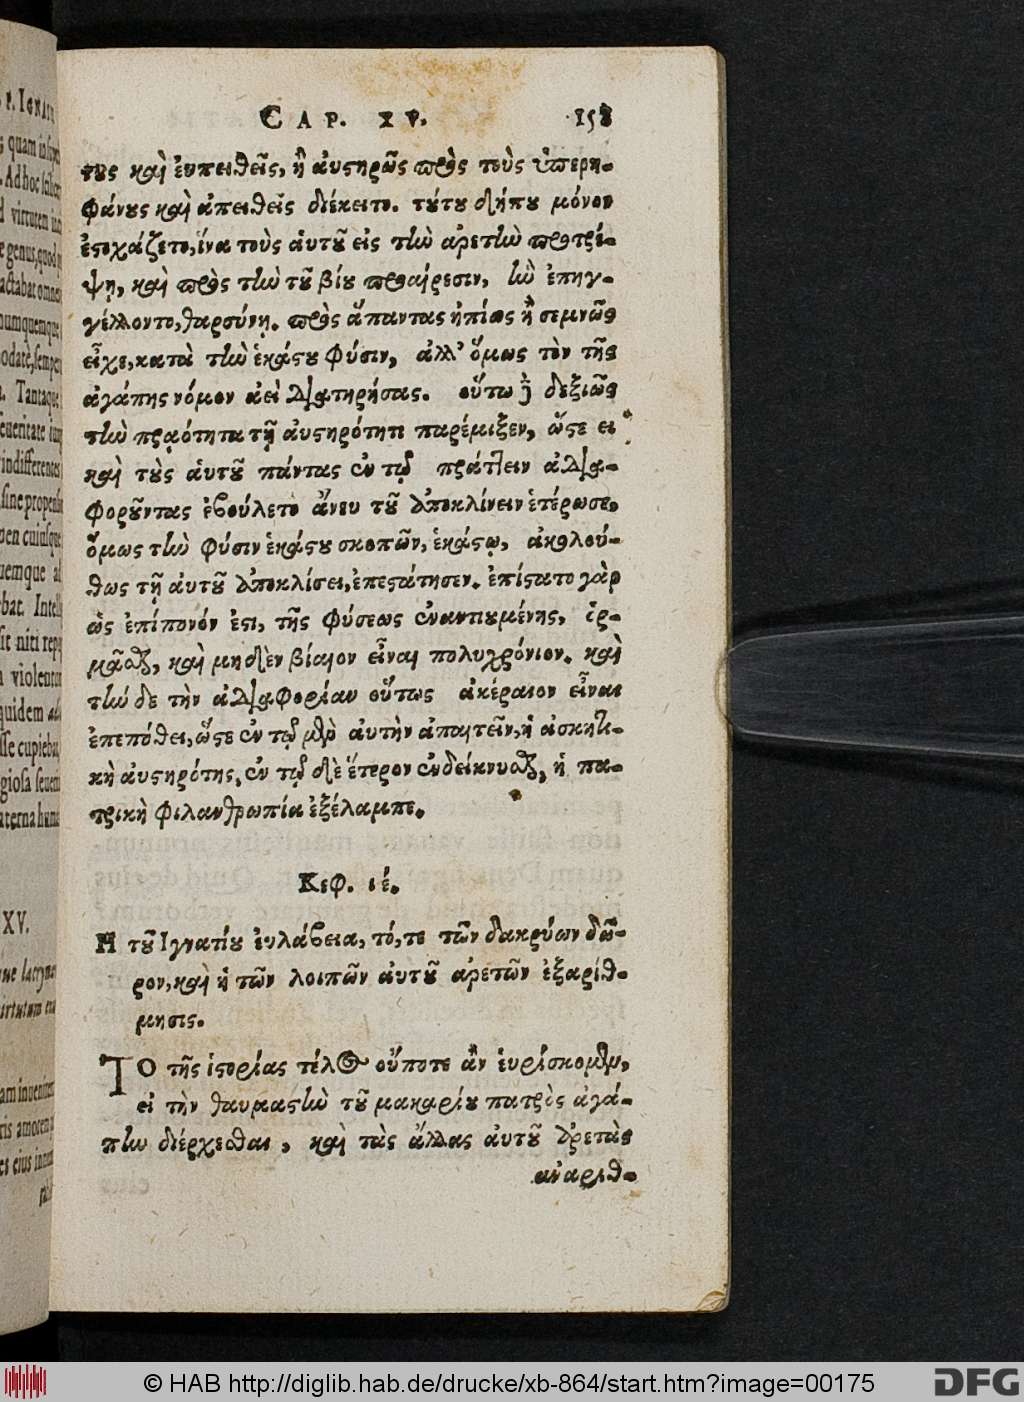 CAP. XV. 158
τους καὶ ἐυπειθεῖς, ἢ ἀυστηρῶς πρὸς τοὺς ὑπερη-
φάνους καὶ ἀπειθεῖς διέκειτο. τούτου δήπου μόνον
ἐστοχάζετο, ἵνα τοὺς ἁυτοῦ εἰς τὴν ἀρετὴν προτρέ-
ψῃ, καὶ πρὸς τὴν τοῦ βίου προαίρεσιν, ἣν ἐπηγ-
γέλλοντο, θαρσύνῃ. πρὸς ἅπαντας ἠπίως ἢ σεμνῶς
εἶχε, κατὰ τὴν ἑκάστου φύσιν, ἀλλ' ὅμως τὸν τῆς
ἀγάπης νόμον ἀεὶ διατηρήσας. οὕτω δὲ δεξιῶς
τὴν πρᾳότητα τῇ ἀυστηρότητι παρέμιξεν, ὥστε εἰ
καὶ τοὺς ἁυτοῦ πάντας ἐν τῷ πράττειν ἀδια-
φοροῦντας ἐβούλετο ἄνευ τοῦ ἀποκλίνειν ἑτέρωσε,
ὅμως τὴν φύσιν ἑκάστου σκοπῶν, ἑκάστῳ, ἀκολού-
θως τῇ ἀυτοῦ ἀποκλίσει, ἐπεστάτησεν. ἐπίστατο γὰρ
ὡς ἐπίπονόν ἐστι, τῆς φύσεως ἐναντιουμένης, ὁρ-
μᾶσθαι, καὶ μηδὲν βίαιον εἶναι πολυχρόνιον. καὶ
τὴν δὲ τὴν ἀδιαφορίαν οὕτως ἀκέραιον εἶναι
ἐπεπόθει, ὥστε ἐν τῷ μὲν ἀυτὴν ἀπαιτεῖν, ἡ ἀσκητι-
κὴ ἀυστηρότης, ἐν τῷ δὲ ἕτερον ἐνδείκνυσθαι, ἡ πα-
τρικὴ φιλανθρωπία ἐξέλαμπε.
Κεφ. ιέ.
Η τοῦ Ιγνατίου ἐυλάβεια, τό, τε τῶν δακρύων δῶ-
ρον, καὶ ἡ τῶν λοιπῶν ἀυτοῦ ἀρετῶν ἐξαρίθ-
μησις.
ΤΟ τῆς ἱστορίας τέλος οὔποτε ἂν ἑυρίσκομεν,
εἰ τὴν θαυμαστὴν τοῦ μακαρίου πατρὸς ἀγά-
πην διέρχεσθαι, καὶ τὰς ἄλλας ἀυτοῦ ἀρετὰς
ἀναριθ-
© HAB http://diglib.hab.de/drucke/xb-864/start.htm?image=00175
DFG